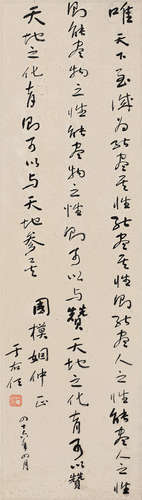 唯天下至誠為能盡其性能盡其性則能盡人之性能盡人之性
則能盡物之性能盡物之性則可以与贊天地之化育可以贊
天地之化育則可以与天地參矣
國模姻仲正
于右任